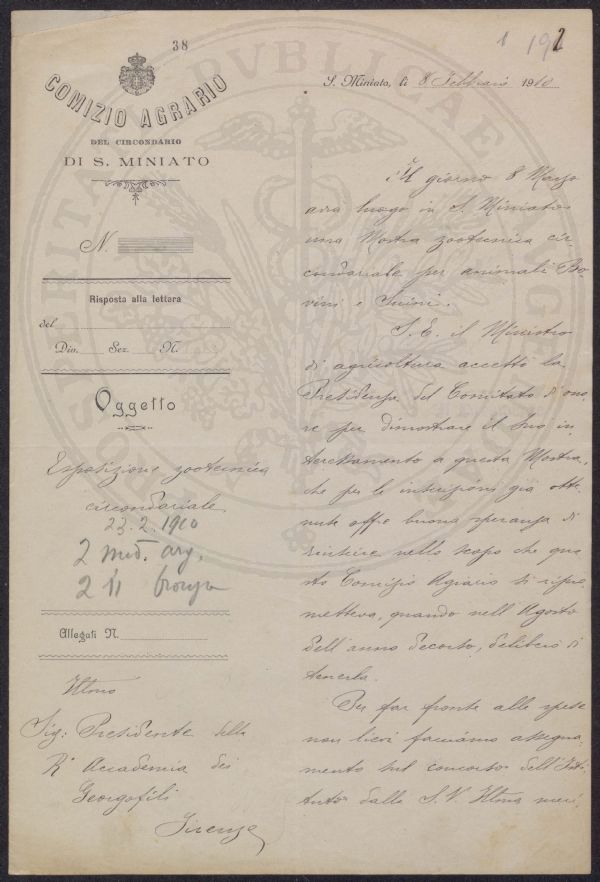 38
1 192
COMIZIO AGRARIO
DEL CIRCONDARIO
DI S. MINIATO
N.
Risposta alla lettera
del
Div. Sez. N.
Oggetto
Esposizione zootecnica
circondariale
23.2.1910
2 med. arg.
2 " bronzo
Allegati N.
Illmo
Sig: Presidente della
R. Accademia dei
Georgofili
Firenze
S. Miniato, li 8 Febbraio 1910
Il giorno 8 Marzo
avrà luogo in S. Miniato
una Mostra zootecnica cir
condariale per animali Bo
vini e Suini.
S. E. il Ministro
di agricoltura accettò la
Presidenza del Comitato d'ono
re per dimostrare il suo in
teressamento a questa Mostra,
che per le inscrizioni già otte
nute offre buona speranza di
riuscire nello scopo che que
sto Comizio Agrario si ripro
metteva, quando nell'Agosto
dell'anno decorso, deliberò di
tenerla.
Per far fronte alle spese
non lievi facciamo assegna
mento sul concorso dell'Isti
tuto dalla S. V. Illma meri